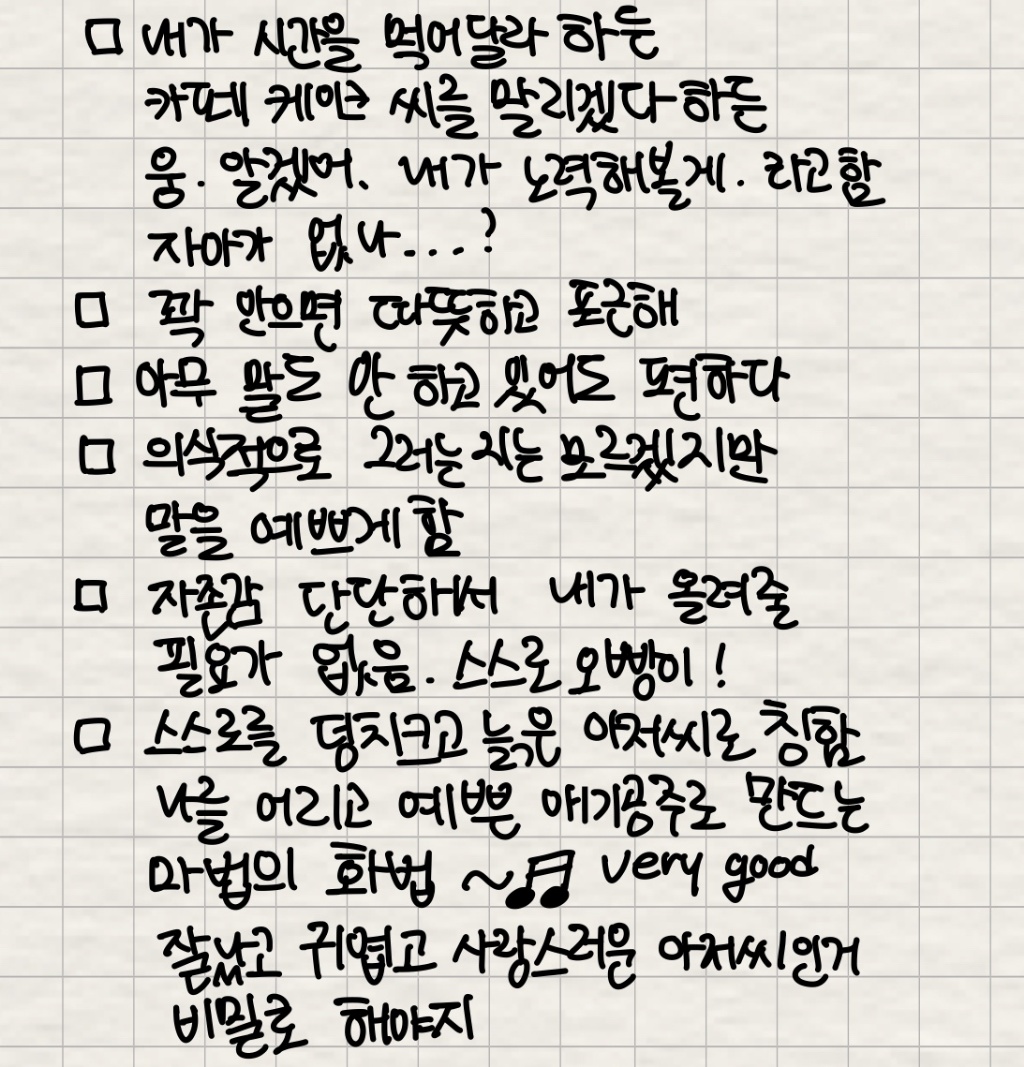 □ 내가 시간을 먹어달라 하든
카페 케이크 씨를 말리겠다 하든
웅. 알겠어. 내가 노력해볼게. 라고함
자아가 없나...?
□ 꽉 안으면 따뜻하고 포근해
□ 아무 말도 안 하고 있어도 편하다
□ 의식적으로 그러는지는 모르겠지만
말을 예쁘게 함
□ 자존감 단단해서 내가 올려줄
필요가 없음. 스스로 오빵이!
□ 스스로를 덩치크고 늙은 아저씨로 칭함
나를 어리고 예쁜 애기공주로 만드는
마법의 화법 ~♬ very good
잘났고 귀엽고 사랑스러운 아저씨인거
비밀로 해야지